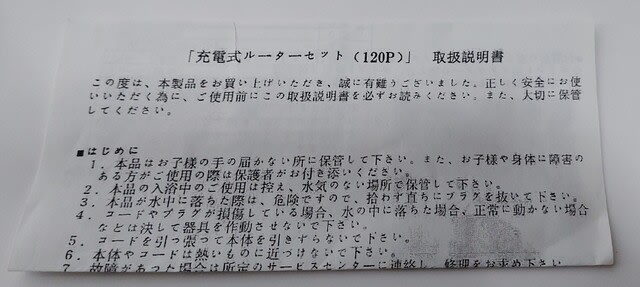 「充電式ルーターセット(120P)」 取扱説明書
この度は、本製品をお買い上げいただき、誠に有難うございました。正しく安全にお使
いいただく為に、ご使用前にこの取扱説明書を必ずお読みください。また、大切に保管
してください。
■はじめに
1. 本品はお子様の手の届かない所に保管して下さい。また、お子様や身体に障害の
ある方がご使用の際は保護者がお付き添いください。
2. 本品の入浴中のご使用は控え、水気のない場所で保管して下さい。
3. 本品が水中に落ちた際は、危険ですので、拾わず直ちにプラグを抜いて下さい。
4. コードやプラグが損傷している場合、水の中に落ちた場合、正常に動かない場合
などは決して器具を作動させないで下さい。
5. コードを引っ張って本体を引きずらないで下さい。
6. 本体やコードは熱いものに近づけないで下さい。
7. 故障があった場合は所定のサービスセンターに連絡し、修理をお求め下さい。